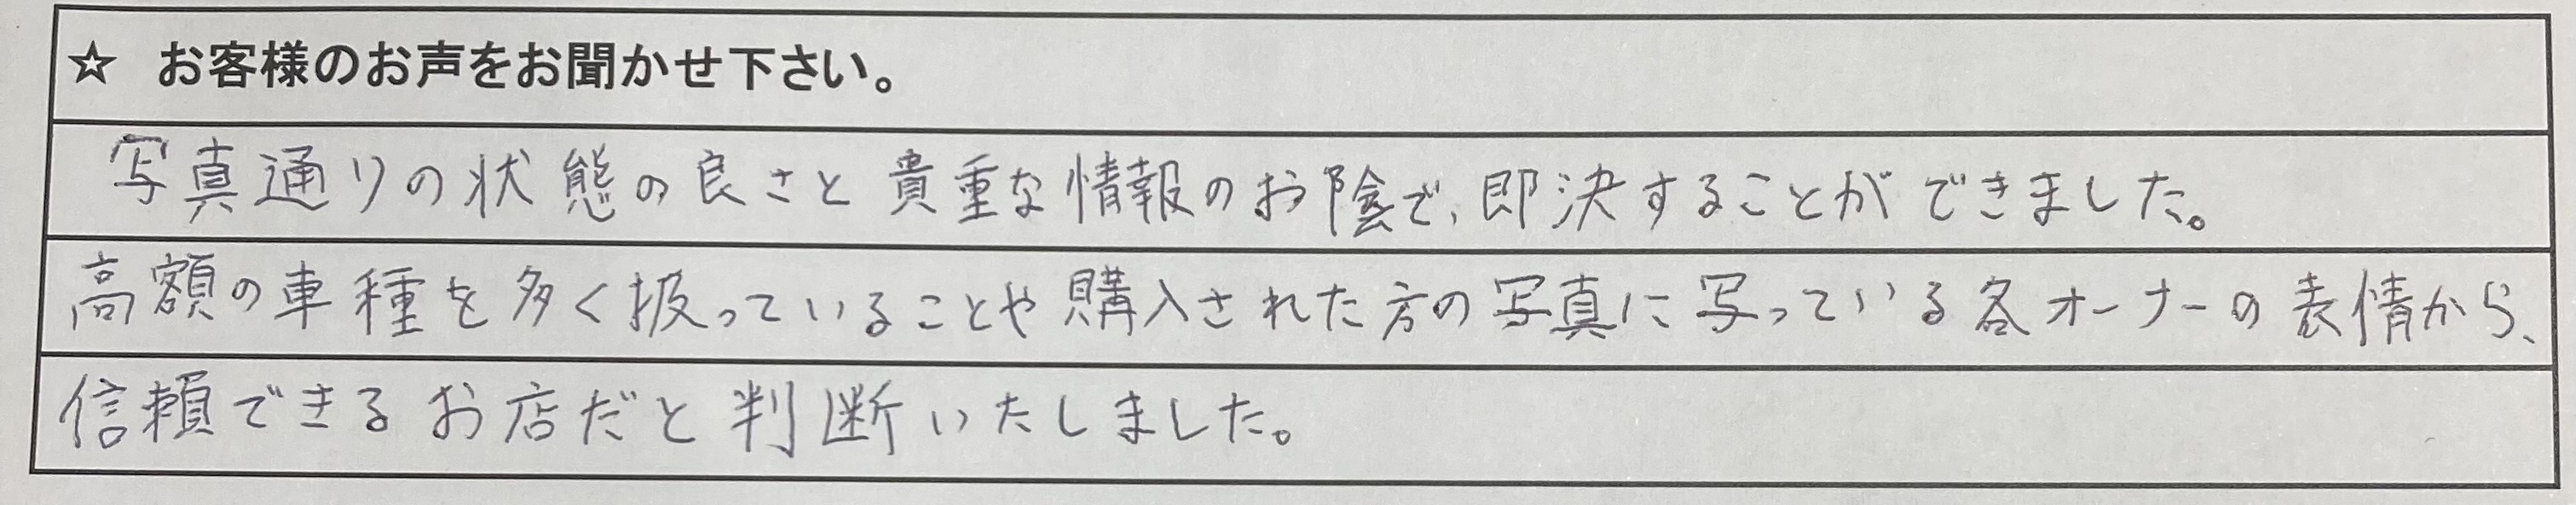 ☆ お客様のお声をお聞かせ下さい。
写真通りの状態の良さと貴重な情報のお陰で、即決することができました。
高額の車種を多く扱っていることや購入された方の写真に写っている各オーナーの表情から、
信頼できるお店だと判断いたしました。